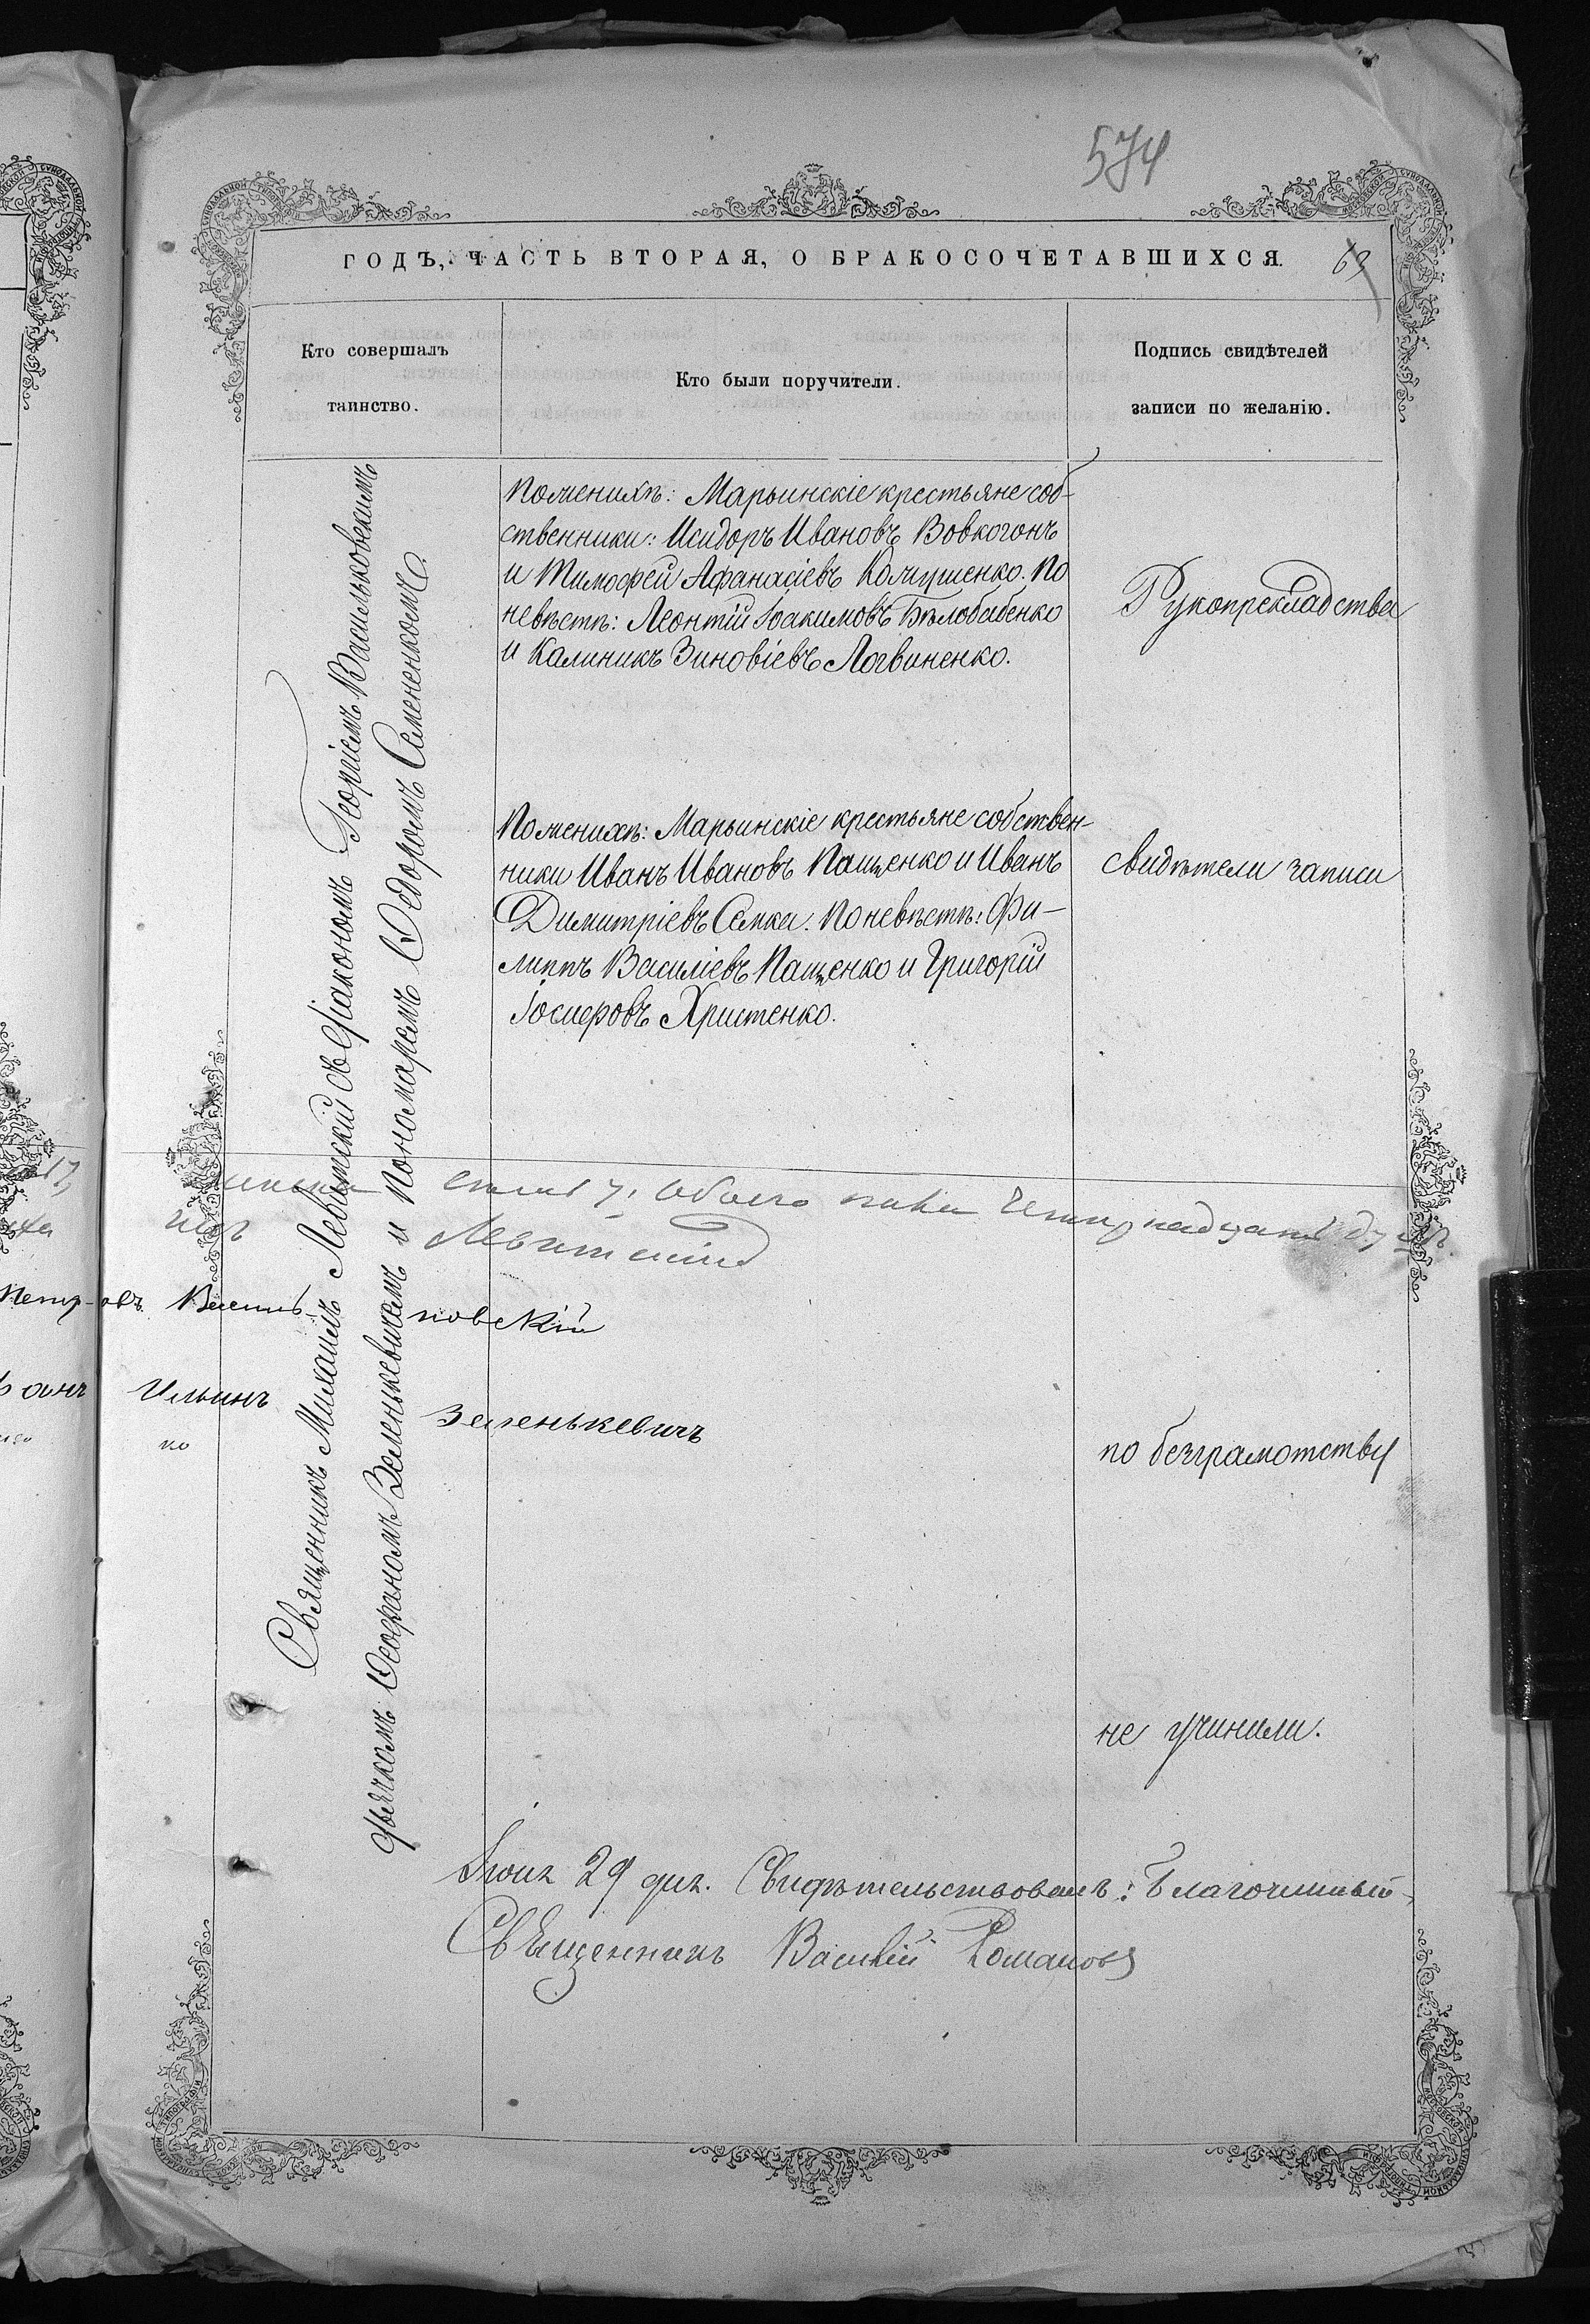 574
ГОДЪ, ЧАСТЬ ВТОРАЯ, О БРАКОСОЧЕТАВШИХСЯ.
63
Кто совершалъ
таинство.
Кто были поручители.
Подпись свидѣтелей
записи по желанію.
Священникъ Михаилъ Левитскій съ Діакономъ Георгіемъ Васильковскимъ
Дьячкомъ Ѳеофаномъ Зеленькевичемъ и Пономаремъ Ѳедоромъ Семененкомъ.
По женихѣ: Марьинскіе крестьяне соб-
ственники: Исидоръ Ивановъ Вовкогонъ
и Тимофей Афанасіевъ Колчушенко. По
невѣстѣ: Леонтій Іоакимовъ Бѣлобабенко
и Калиникъ Зиновіевъ Логвиненко.
Рукоприкладства
По женихѣ: Марьинскіе крестьяне собствен-
ники Иванъ Ивановъ Пащенко и Иванъ
Димитріевъ Семка. По невѣстѣ: Фи-
липпъ Василіевъ Пащенко и Григорій
Іосифовъ Христенко.
свидѣтели записи
обоего пола четырнадцать душъ.
Левитскій
Петр-овъ Василь-ковскій
Ильинъ Зеленькевичъ
ко
по безграмотству
не учинили.
Іюня 29 дня. Свидѣтельствовалъ: Благочинный
Священникъ Василій Романовъ